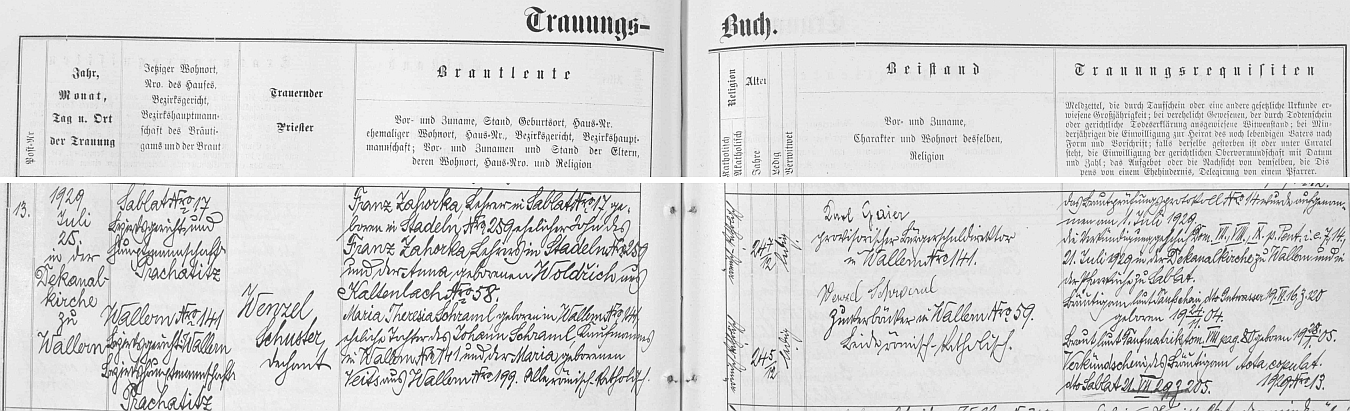 Trauungs-
Buch.
Post-Nr
Jahr,
Monat,
Tag u. Ort
der Trauung
Jetziger Wohnort,
Nro. des Hauses,
Bezirksgericht,
Bezirkshauptmann-
schaft des Bräuti-
gams und der Braut
Trauender
Priester
Brautleute
Vor- und Zuname, Stand, Geburtsort, Haus-Nr.
ehemaliger Wohnort, Haus-Nr., Bezirksgericht, Bezirkshaupt-
mannschaft; Vor- und Zunamen und Stand der Eltern,
deren Wohnort, Haus-Nro. und Religion
Religion
Katholisch
Akatholisch
Alter
Jahre
Ledig
Verwitwet
Beistand
Vor- und Zuname,
Charakter und Wohnort desselben,
Religion
Trauungsrequisiten
Meldzettel, die durch Taufschein oder eine andere gesetzliche Urkunde er-
wiesene Großjährigkeit; bei verehelicht Gewesenen, der durch Todtenschein
oder gerichtliche Todeserklärung ausgewiesene Witwenstand; bei Min-
derjährigen die Einwilligung zur Heirat des noch lebendigen Vaters nach
Form und Vorschrift; falls derselbe gestorben ist oder unter Curatel
steht, die Einwilligung der gerichtlichen Obervormundschaft mit Datum
und Zahl; das Aufgebot oder die Nachsicht von demselben, die Dis
pens von einem Ehehindernis, Delegirung von einem Pfarrer.
13.
1929
Juli
25.
in der
Dekanal-
kirche
zu
Wallern
Sablat Nro 17
Bezirksgericht und
Hauptmannschaft
Prachatitz
Wallern Nro 141
Bezirksgericht Wallern
Bezirkshauptmannschaft
Prachatitz
Wenzel
Schuster,
Dechant
Franz Zahorka, Lehrer in Sablat Nro 17 ge-
boren in Stadeln, Nro 259 ehelicher Sohn des
Franz Zahorka, Lehrers in Stadeln Nro 259
und der Anna, geborenen Woldrich aus
Kaltenbach Nro 58.
Maria Theresia Schraml, geboren in Wallern Nro 141
eheliche Tochter des Johann Schraml, Kaufmannes
in Wallern Nro 141 und der Maria, geborenen
Veits aus Wallern Nro 199. Alle römisch-katholisch.
24
ledig
24 5/12
ledig
Karl Gaier
provisorischer Bürgerschuldirektor
in Wallern Nro 141.
Wenzel Schraml
Zuckerbäcker in Wallern Nro 59.
Beide römisch-katholisch.
das Brautprüfungsprotokoll Nro 14 wurde aufgenom-
men am 1. Juli 1929
die Verkündigung geschah Dom. VII, VIII, IX. p. Pent. i. e. 7, 14,
21. Juli 1929 in der Dekanalkirche zu Wallern und in
der Pfarrkirche zu Sablat.
Bräutigam laut Taufschein dto
geboren 19 04.
Braut laut Taufmatrik tom. VIII pag. 80 geboren 19 05.
Verkündschein des Bräutigam
dto Sablat 21. VII. 29 Z. 205.
Acta copulat.
1929 Nro 13.